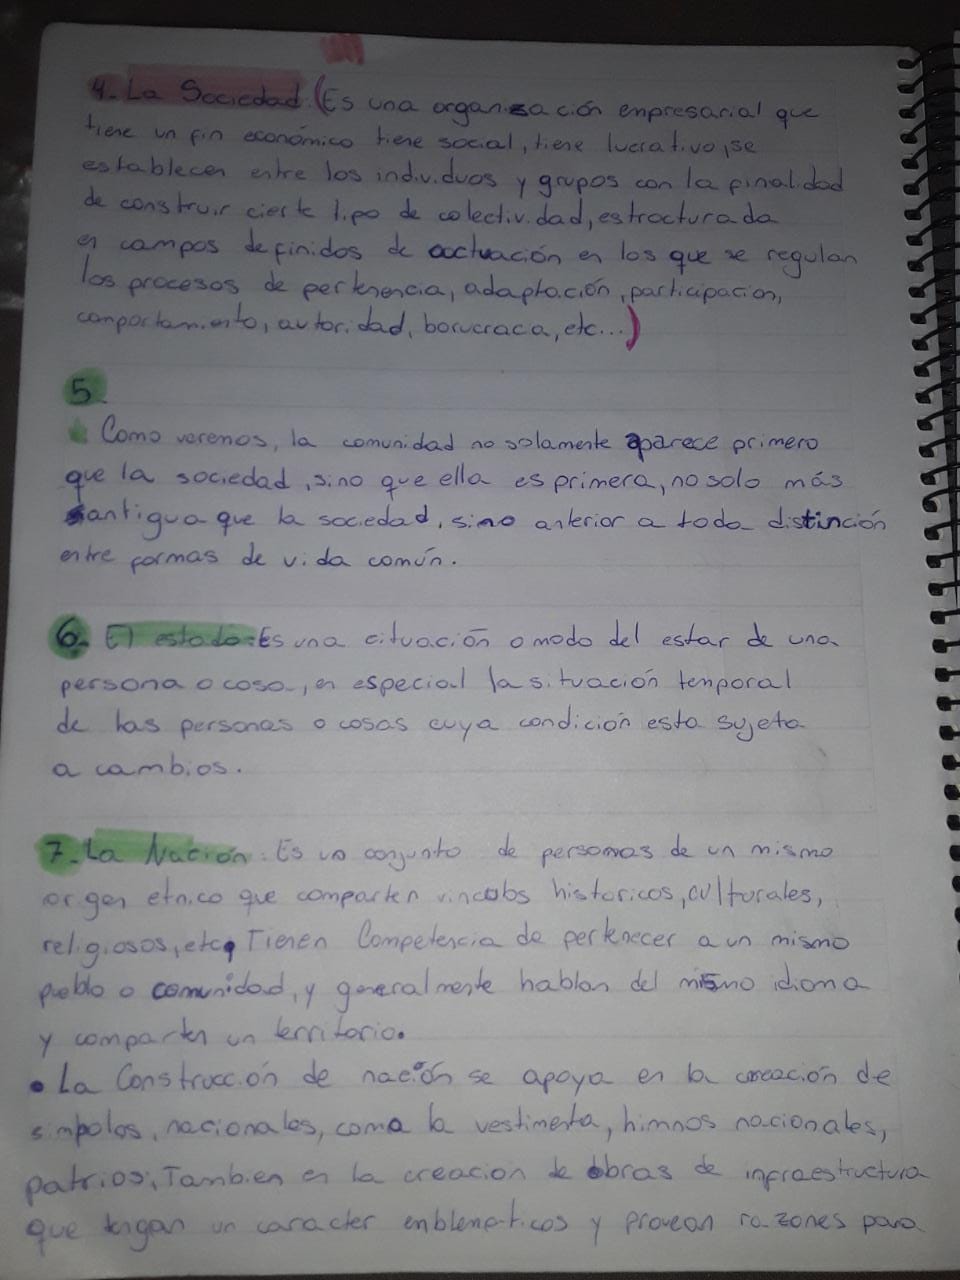 4. La Sociedad (Es una organización empresarial que
tiene un fin económico tiene social, tiene lucrativo, se
establecen entre los individuos y grupos con la finalidad
de construir cierto tipo de colectividad, estructurada
en campos definidos de actuación en los que se regulan
los procesos de pertenencia, adaptación, participacion,
comportamiento, autoridad, borucraca, etc...)
5.
Como veremos, la comunidad no solamente aparece primero
que la sociedad, sino que ella es primera, no solo más
antigua que la sociedad, sino anterior a toda distinción
entre formas de vida común.
6. El estado: Es una cituación o modo del estar de una
persona o cosa, en especial la situación temporal
de las personas o cosas cuya condición esta sujeta
a cambios.
7. La Nación. Es un conjunto de personas de un mismo
origen etnico que comparten vinculos historicos, culturales,
religiosos, etc, Tienen Competencia de pertenecer a un mismo
pueblo o comunidad, y generalmente hablan del mismo idioma
y comparten un territorio.
• La Construcción de nación se apoya en la creación de
simbolos, nacionales, como la vestimenta, himnos nacionales,
patrios; Tambien en la creacion de obras de infraestructura
que tengan un caracter emblematicos y provean razones para